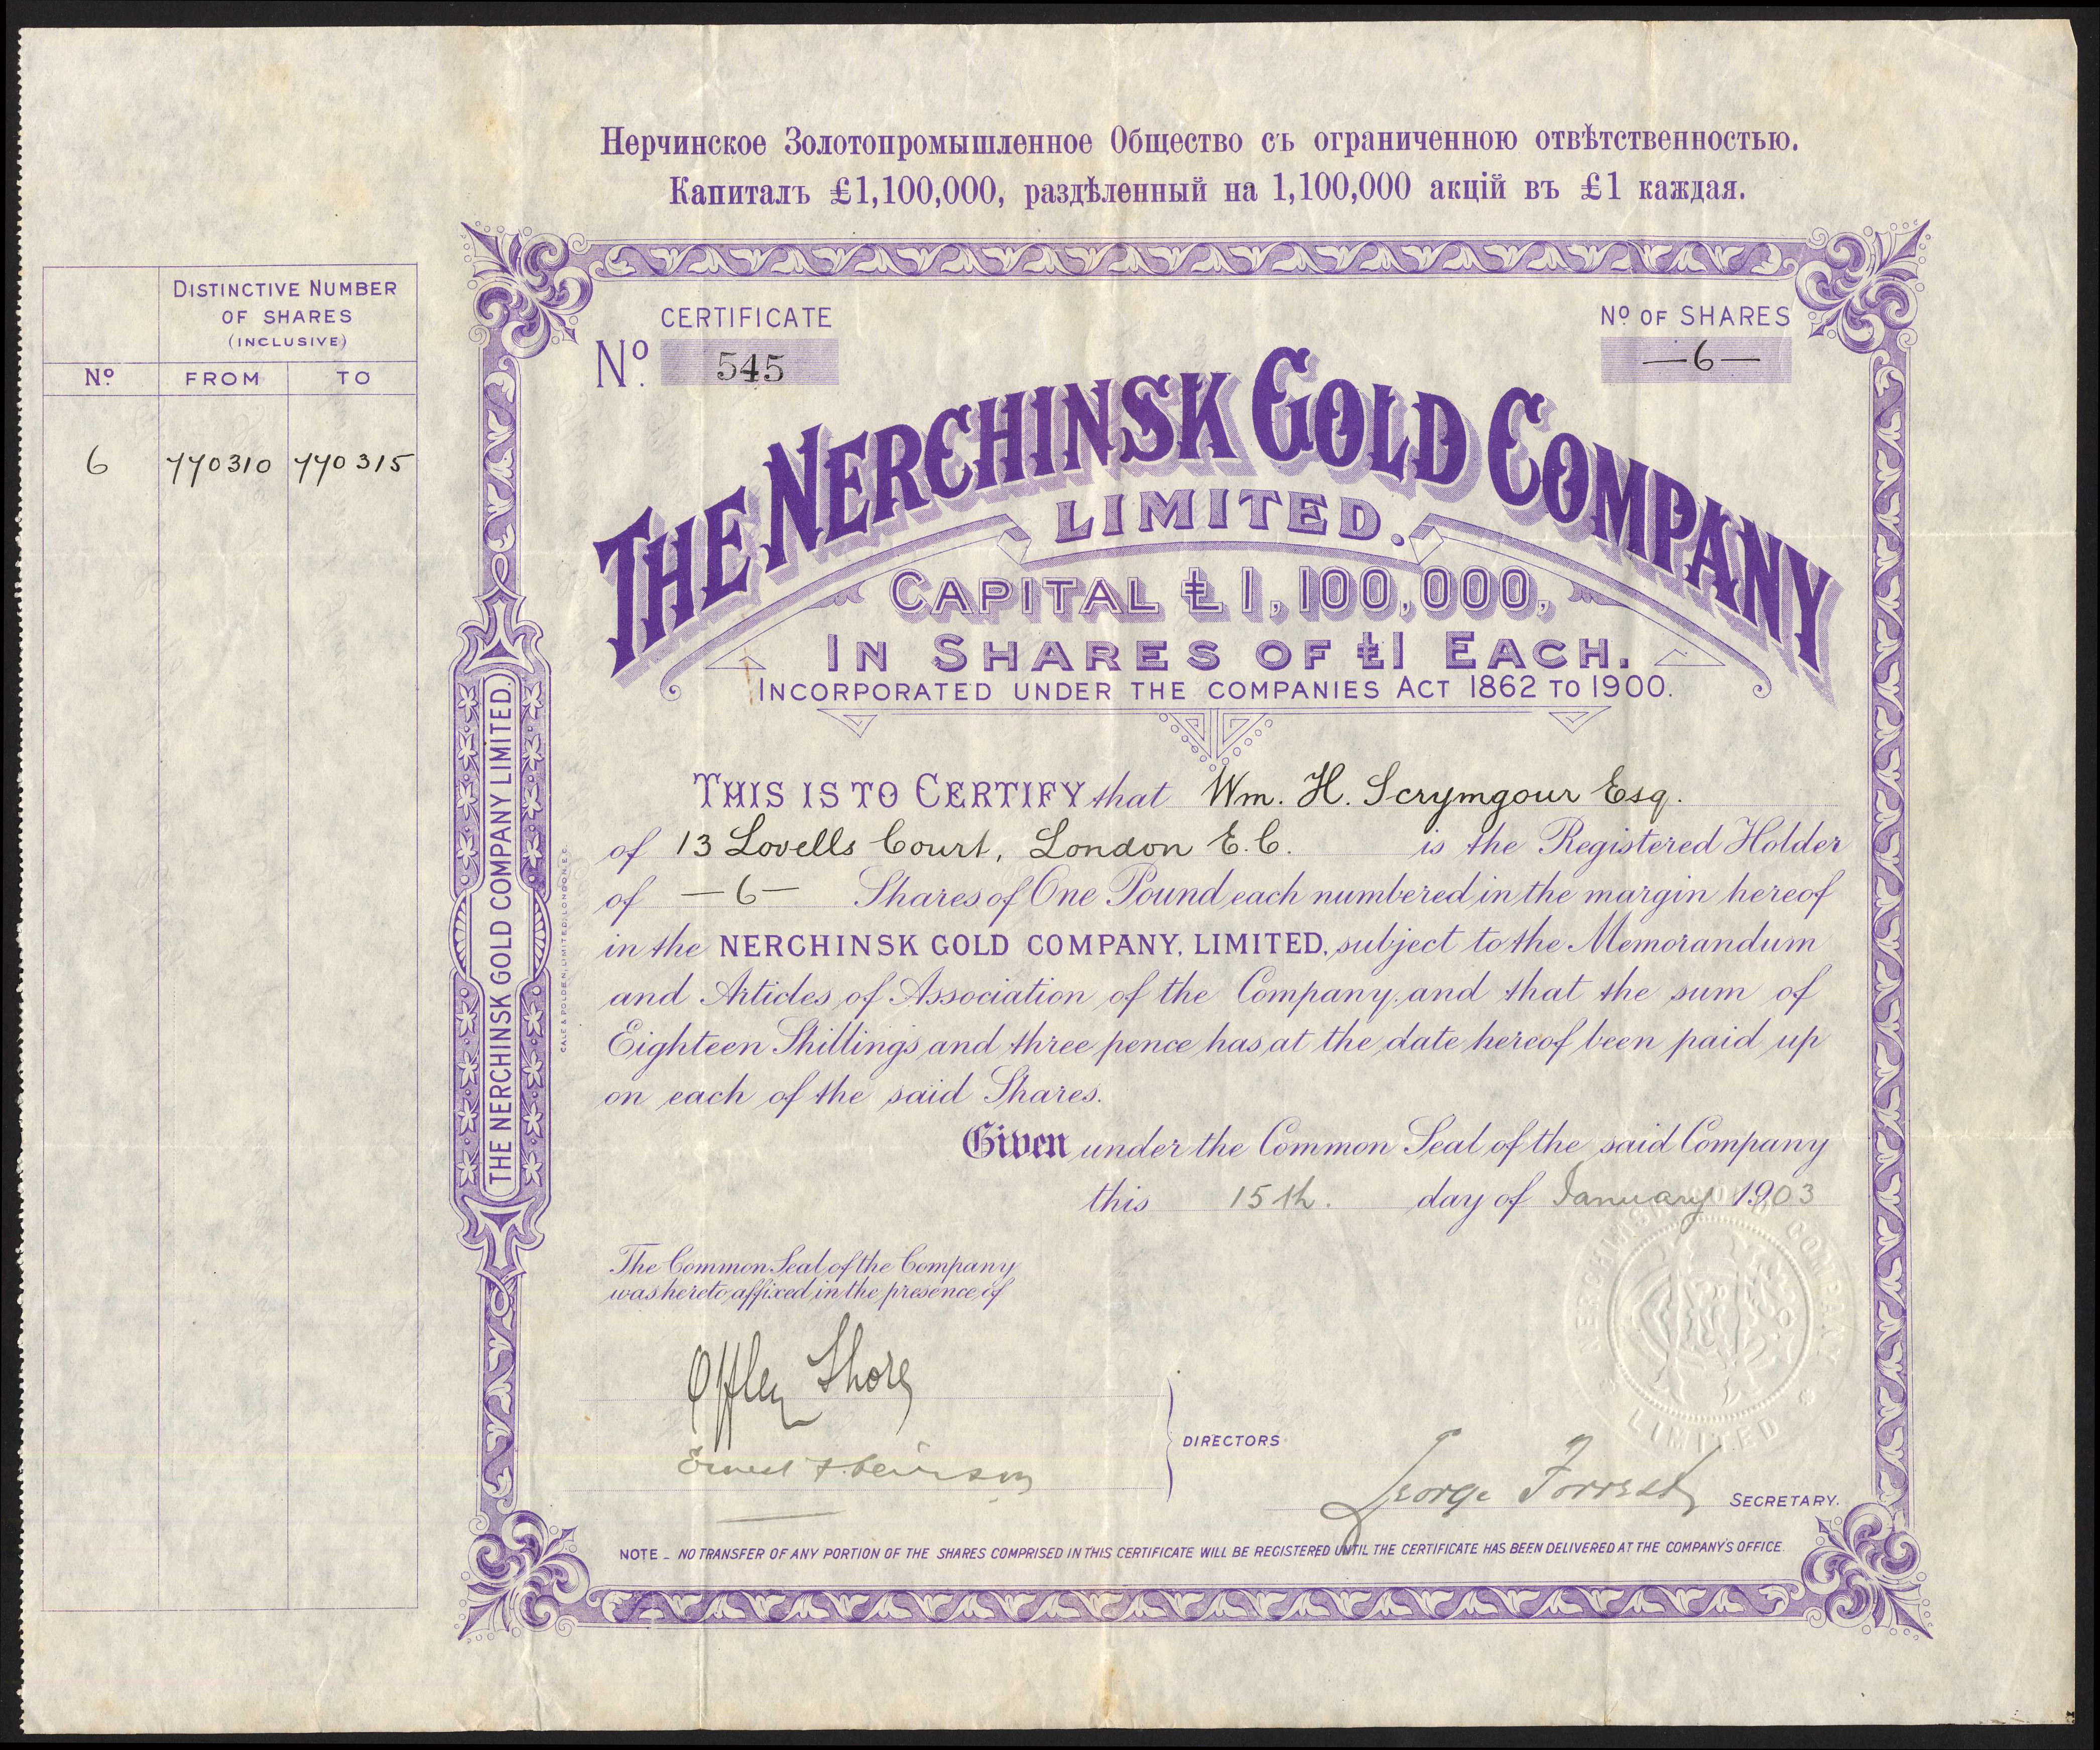 Нерчинское Золотопромышленное Общество съ ограниченною отвѣтственностью.
Капиталъ £1,100,000, раздѣленный на 1,100,000 акцій въ £1 каждая.
DISTINCTIVE NUMBER
OF SHARES
(INCLUSIVE)
Nº FROM TO
6 770310 770315
CERTIFICATE
Nº. 545
Nº OF SHARES
—6—
THE NERCHINSK GOLD COMPANY
LIMITED.
CAPITAL £1,100,000,
IN SHARES OF £1 EACH.
INCORPORATED UNDER THE COMPANIES ACT 1862 TO 1900.
THIS IS TO CERTIFY that Wm. H. Scrymgour Esq.
of 13 Lovells Court, London E.C. is the Registered Holder
of —6— Shares of One Pound each numbered in the margin hereof
in the NERCHINSK GOLD COMPANY, LIMITED, subject to the Memorandum
and Articles of Association of the Company, and that the sum of
Eighteen Shillings and three pence has at the date hereof been paid up
on each of the said Shares.
Given under the Common Seal of the said Company
this 15th. day of January 1903
The Common Seal of the Company
was hereto affixed in the presence of
Offley Shore
Ernest
DIRECTORS
George Forrest SECRETARY.
NOTE _ NO TRANSFER OF ANY PORTION OF THE SHARES COMPRISED IN THIS CERTIFICATE WILL BE REGISTERED UNTIL THE CERTIFICATE HAS BEEN DELIVERED AT THE COMPANY'S OFFICE.
THE NERCHINSK GOLD COMPANY LIMITED.
CALE & POLDEN, LIMITED, LONDON, E.C.
NERCHINSK GOLD COMPANY
LIMITED